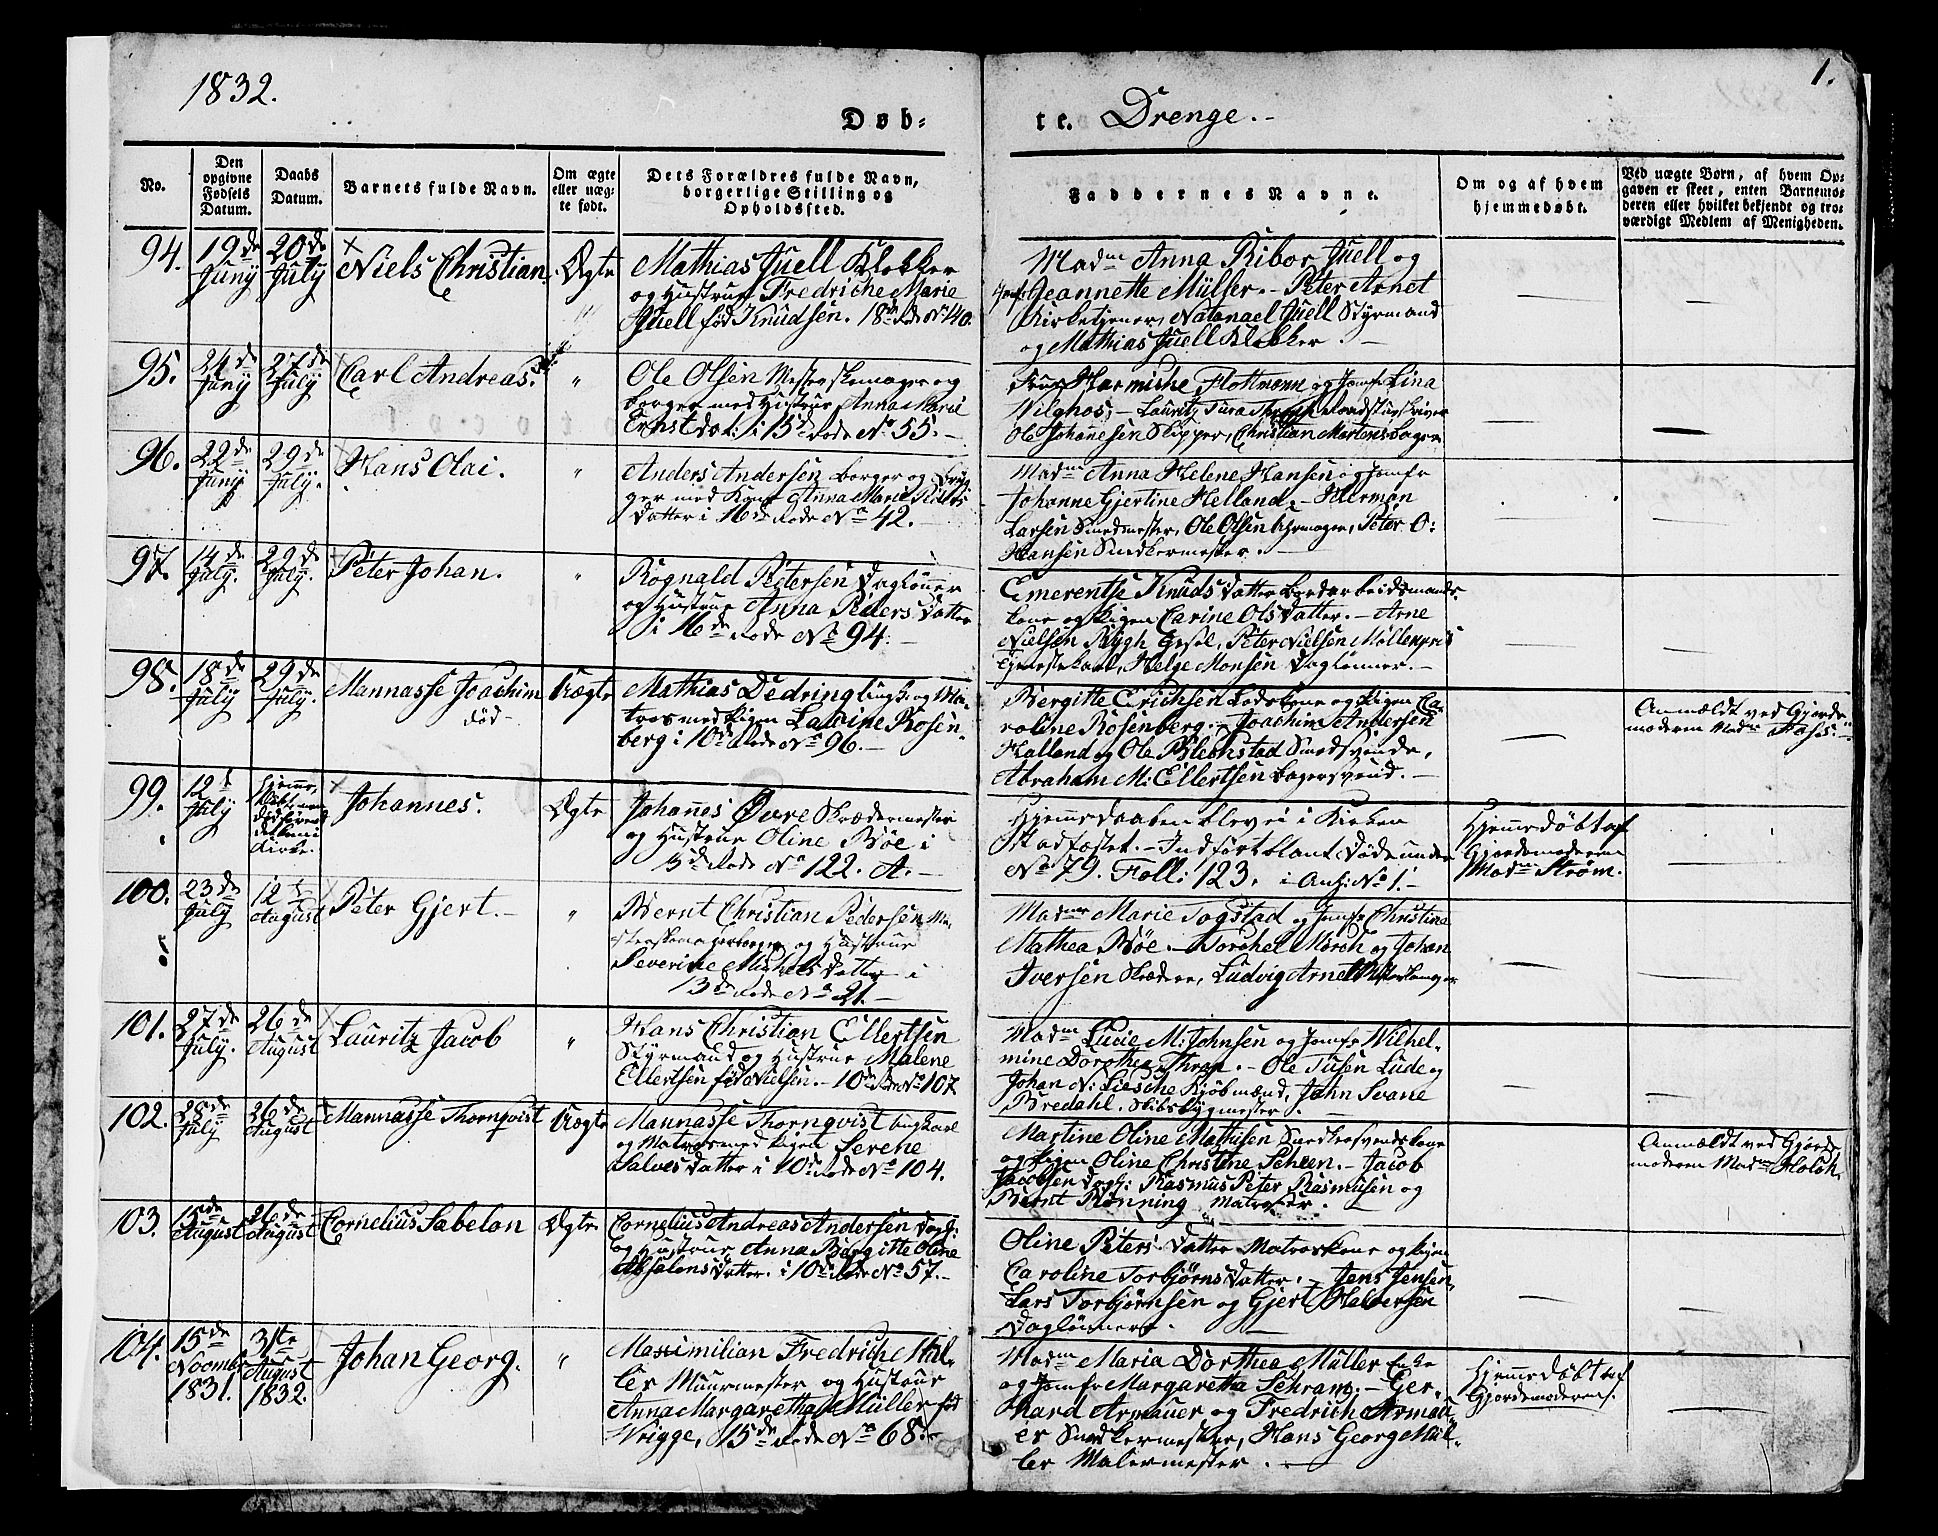 1832.
1.
Døb-
te. Drenge.-
No.
Den
opgivne
Fødsels
Datum.
Daabs
Datum.
Barnets fulde Navn.
Om ægte
eller uæg-
te født.
Dets Forældres fulde Navn,
borgerlige Stilling og
Opholdssted.
Faddernes Navne.
Om og af hvem
hjemmedøbt.
Ved uægte Børn, af hvem Op-
gaven er skeet, enten Barnemo-
deren eller hvilket bekjendt og tro-
værdigt Medlem af Menigheden.
94.
19de
Juny
20de
July
Niels Christian.
Ægte
Mathias Juell Klokker
og Hustrue Fredriche Marie
Juell fød Knudsen. 18de Rode No 40.
Madme Anna Ribor Juell og
Jeannette Müller.- Peter Arnet
Kirketjener, Natanael Juell Styrmand
og Mathias Juell Klokker.-
95.
24de
Juny
27de
July
Carl Andreas.
"
Ole Olsen Mesterskomager og
borger med Hustrue Anna Marie
Ernstdo: i 15de Rode No 55.-
Flottmann og Jomfr Lina
Ole Johanesen Skipper, Christian Martens bager
96.
29de
Juny
29de
July.
Hans Olai.
"
Anders Andersen borger og
ger med Kone Anna Marie
Datter i 16de Rode No 42.-
Madme Anna Helene Hansen og Jomfr
Johanne Gjertine Helland.- Herman
Larsen Smedmester, Ole Olsen Uhrmager, Peter O:
Hansen Snedkermester.-
97.
14de
July.
29de
July.
Peter Johan.
"
Rognald Pedersen Dagløner
og Hustrue Anna Peders Datter
i 16de Rode No 94.-
Emerentse Knuds Datter Bordarbeidsmands
kone og Pigen Carine Ols Datter.- Arne
Nielsen Rygh Gesel, Peter Nielsen Möllenpris
Tjenestekarl, Helge Monsen Daglønner.-
98.
18de
July
29de
July.
Mannasse Joachim
død-
Uægte
Mathias Dedring Ungk: og Ma-
tros med Pigen Laurine Rosen-
berg i 10de Rode No 96.-
Bergitte Erichsen Lodskone og Pigen Ca-
roline Rosenberg.- Joachim Andersen
Halland og Ole Blechstad Smedsvende,
Abraham M: Ellertsen bagersvend.-
Anmældt ved Gjorde-
moderen Madme
99.
12te
July
Hjemme
døbt
Kirke.
Johannes.
Ægte
Johanes Øvre Skrædermester
og Hustrue Oline Bøe i
3de Rode No 122. A.-
Hjemmedaaben blev ei i Kirken
Stadfæstet.- Indført blant Døde under
No 79. Foll: 123. i Anh: No 1.-
Hjemmedøbt af
Gjordemoderen
Madme Strøm.
100.
23de
July
12te
August
Peter Gjert.-
"
Bernt Christian Pedersen Me-
sterskomager borger og Hustrue
Severine Michels Datter i
13de Rode No 21.-
Madme Marie Togstad og Jomfr Christina
Mathea Bøe.- Torchel Morch og Johan
Iversen Skrædere, Ludvig Arnet
101.
27de
July.
26de
August
Lauritz Jacob
"
Hans Christian Ellertsen
Styrmand og Hustrue Malene
Ellertsen fød Nielsen.- 10de Rode No 107
Madme Lucie M: Johnsen og Jomfr Wilhel-
mine Dorothea Thrap.- Ole Tusen Lude og
Johan N: Liesche Kjøbmænd, John Svane
Bredahl. Skibsbygmester.-
102.
28de
July
26de
August
Mannasse Thornqvist
Uægte
Mannasse Thornqvist Ungkarl
og Matros med Pigen Serene
Salves Datter i 10de Rode No 104.
Martine Oline Mathisen Snedkersvends kone
og Pigen Oline Christine Scheen.- Jacob
Jacobsen Dagl: Rasmus Peter Rasmusen og
Bernt Rønning Matroser.
Anmældt ved Gjorde
moderen Madme Holch.
103.
15de
August
26de
August
Cornelius Sabelon
Ægte
Cornelius Andreas Andersen Dagl:
og Hustrue Anna Bergitte Oline
Absalons Datter. i 10de Rode No 57.-
Oline Peters Datter Matroskone og Pigen
Caroline Torbjørns Datter.- Jens Jensen,
Lars Torbjørnsen og Gjert Halversen
Daglønnere.
104.
15de
Novmb
1831.
31te
August
1832.
Johan Georg.
"
Maximilian Fredrich Mül-
ler Muurmester og Hustrue
Anna Margaretha Müller fød
Wrigge, 15de Rode No 68.
Madme Maria Dorthea Müller Enke
og Jomfr Margaretha Schram.- Ger-
hard Armauer og Fredrich Armau-
er Snedkermester, Hans Georg Mül-
ler Malermester.-
Hjemmedøbt af
Gjordemoderen.